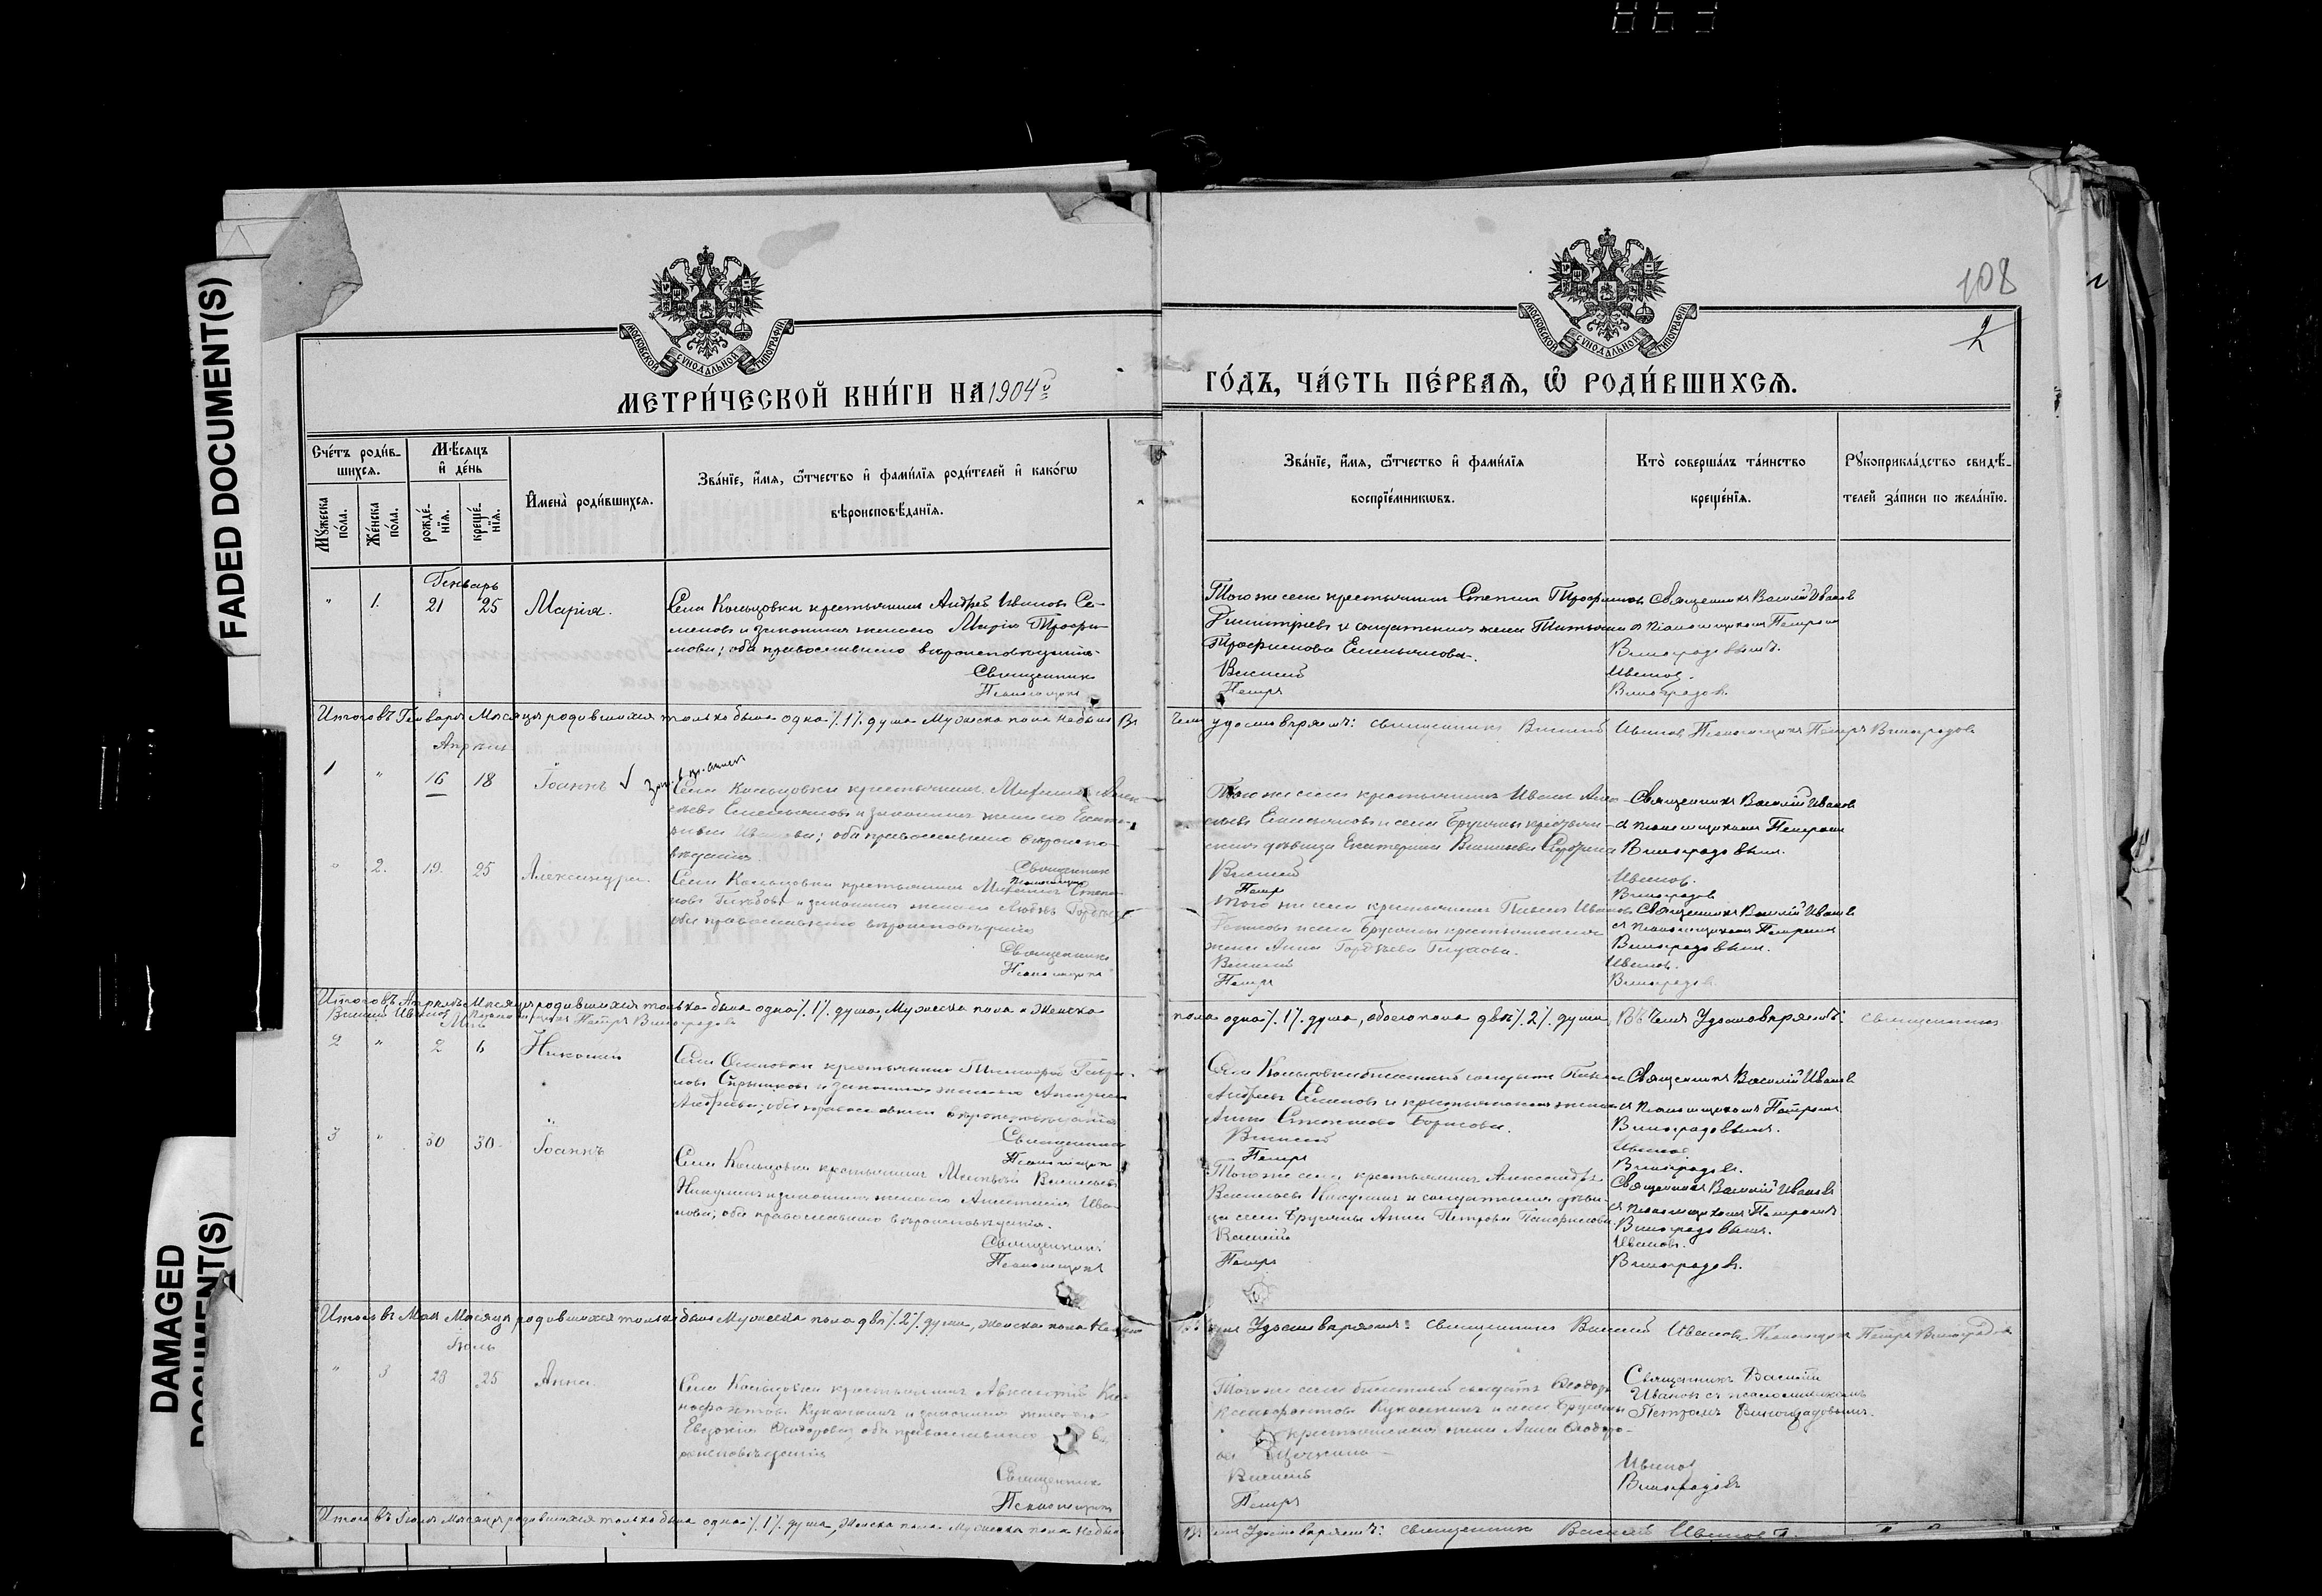 FADED DOCUMENT(S)
DAMAGED
DOCUMENT(S)
108
2
МОСКОВСКОЙ СѴНОДАЛЬНОЙ ТИПОГРАФІИ
МОСКОВСКОЙ СѴНОДАЛЬНОЙ ТИПОГРАФІИ
МЕТРИ́ЧЕСКОЙ КНИ́ГИ НА 1904й
ГО́ДЪ, ЧА́СТЬ ПЕ́РВАЯ, Ѡ РОДИ́ВШИХСЯ.
Сче́тъ роди́в-
шихся.
Мѣ́сяцъ
и де́нь
Мꙋ́жеска
по́ла.
Же́нска
по́ла.
рожде́-
нїя.
креще́-
нїя.
Имена̀ роди́вшихся.
Зва́нїе, и́мя, ѻ҆́тчество и фами́лїя роди́телей и како́гѡ
вѣроисповѣ́данїя.
Зва́нїе, и́мя, ѻ҆́тчество и фами́лїя
воспрїе́мникѡвъ.
Кто̀ соверша́лъ та́инство
креще́нїя.
Рꙋкоприкла́дство свидѣ́-
телей за́писи по жела́нїю.
Генварь
" 1. 21 25 Марія.
Села Кольцовки крестьянинъ Андрей Ивановъ Се-
меновъ и законная жена его Марія Трофи-
мова; оба православнаго вѣроисповѣданія.
Священникъ
Псаломщикъ
Того же села крестьянинъ Степанъ Трофимовъ
Димитріевъ и солдатская жена Татьяна
Трофимова Емельянова.
Василий
Петръ
Священникъ Василій Ивановъ
съ псаломщикомъ Петромъ
Виноградовымъ.
Ивановъ.
Виноградовъ.
Итого въ Генварѣ Мѣсяцѣ родившихся только была одна /.1/. душа Мужеска пола не было Въ
чемъ удостовѣряемъ: священникъ Василий Ивановъ Псаломщикъ Петръ Виноградовъ
Апрѣль
1 " 16 18 Іоаннъ
Села Кольцовки крестьянинъ Михаилъ Алек-
сѣевъ Емельяновъ и законная жена его Екате-
рина Иванова; оба православнаго вѣроиспо-
вѣданія
Священникъ
Псаломщикъ
Того же села крестьянинъ Иванъ Алек-
сѣевъ Емельяновъ и села Брусяны крестьян-
ская дѣвица Екатерина Васильева
Василий
Петръ
Священникъ Василій Ивановъ
съ псаломщикомъ Петромъ
Виноградовымъ.
Ивановъ.
Виноградовъ
" 2. 19. 25 Александра.
Села Кольцовки крестьянинъ Михаилъ Степа-
новъ Глѣбовъ и законная жена его Любовь Гордѣева
оба православнаго вѣроисповѣданія
Священникъ
Псаломщикъ
Того же села крестьянинъ Павелъ Ивановъ
и села Брусяны крестьянская
жена Анна Гордѣева
Василий
Петръ
Священникъ Василій Ивановъ
съ псаломщикомъ Петромъ
Виноградовымъ.
Ивановъ.
Виноградовъ.
Итого въ Апрѣлѣ Мѣсяцѣ родившихся только была одна /.1/. душа, Мужеска пола и Женска
пола одна /.1/. душа, обоего пола двѣ /.2/. души. Въ чемъ Удостовѣряемъ: священникъ
Василий Ивановъ Псаломщикъ Петръ Виноградовъ
Май
2 " 2 6 Николай
Села Осиновки крестьянинъ Тимофей
и законная жена его
Андреева; оба православнаго вѣроисповѣданія
Священникъ
Псаломщикъ
Села Кольцовки билетный солдатъ Павелъ
Андреевъ Семеновъ и крестьянская жена
Анна Борисова.
Василий
Петръ
Священникъ Василій Ивановъ
съ псаломщикомъ Петромъ
Виноградовымъ.
Ивановъ.
Виноградовъ.
3 " 30 30 Іоаннъ
Села Кольцовки крестьянинъ Матвѣй Васильевъ
Никулинъ и законная жена его Анастасія Ива-
нова; оба православнаго вѣроисповѣданія.
Священникъ
Псаломщикъ
Того же села крестьянинъ Александръ
Васильевъ Никулинъ и солдатская дѣви-
ца села Брусяны Анна Петрова
Василий
Петръ
Священникъ Василій Ивановъ
съ псаломщикомъ Петромъ
Виноградовымъ.
Ивановъ.
Виноградовъ.
Итого въ Маѣ Мѣсяцѣ родившихся только было Мужеска пола двѣ /.2/. души, Женска пола не было
Въ чемъ Удостовѣряемъ: священникъ Василий Ивановъ Псаломщикъ Петръ Виноградовъ
Іюль
" 3 23 25 Анна.
Села Кольцовки крестьянинъ Авксентій Ксе-
нофонтовъ Кукалкинъ и законная жена его
Евдокія Ѳеодорова, оба православнаго вѣ-
роисповѣданія
Священникъ
Псаломщикъ
Того же села билетный солдатъ Ѳеодоръ
Ксенофонтовъ Кукалкинъ и села Брусяны
крестьянская жена Анна Ѳеодоро-
ва
Василий
Петръ
Священникъ Василій
Ивановъ съ псаломщикомъ
Петромъ Виноградовымъ.
Ивановъ
Виноградовъ
Итого въ Іюлѣ Мѣсяцѣ родившихся только была одна /.1/. душа, Женска пола Мужеска пола не было
Въ чемъ Удостовѣряемъ: священникъ Василий Ивановъ